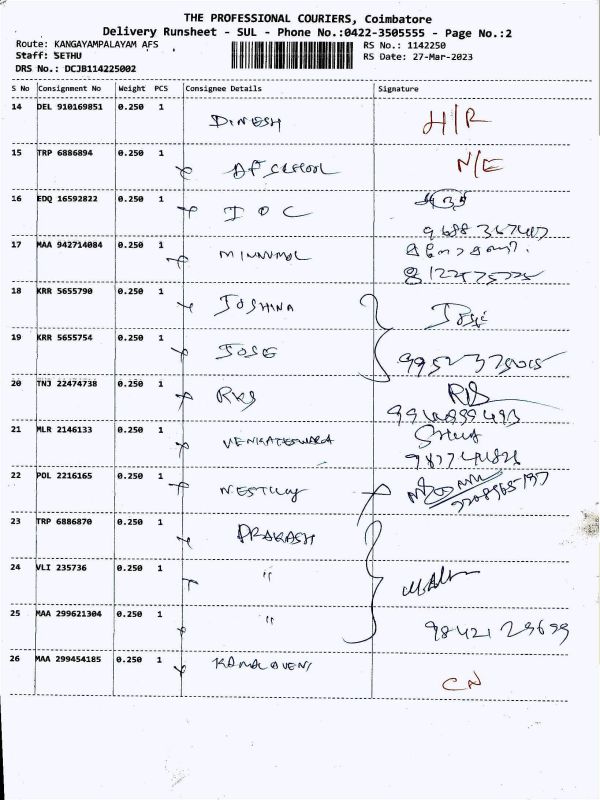 THE PROFESSIONAL COURIERS, Coimbatore
Delivery Runsheet - SUL - Phone No.:0422-3505555 - Page No.:2
Route: KANGAYAMPALAYAM AFS RS No.: 1142250
Staff: SETHU RS Date: 27-Mar-2023
DRS No.: DCJB114225002
S No Consignment No Weight PCS Consignee Details Signature
14 DEL 910169851 0.250 1 DINESH H/R
15 TRP 6886894 0.250 1 AF SCHOOL N/E
16 EDQ 16592822 0.250 1 IOC
17 MAA 942714084 0.250 1
18 KRR 5655790 0.250 1 JOSHINA
19 KRR 5655754 0.250 1 JOSE
20 TNJ 22474738 0.250 1 RKS
21 MLR 2146133 0.250 1 VENKATESWARA
22 POL 2216165 0.250 1
23 TRP 6886870 0.250 1 PRAKASH
24 VLI 235736 0.250 1 "
25 MAA 299621304 0.250 1 "
26 MAA 299454185 0.250 1 KAMALAVENI CN